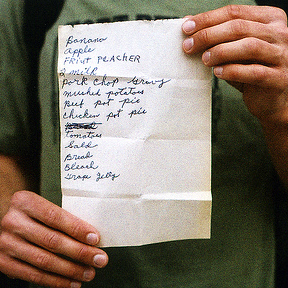 Banana
Apple
FRiut PLACHER
2 milk
Pork chop Gravy
mushed potatoes
Beef pot pie
Chicken pot pie
tomatoes
Salad
Bread
Bleach
Grape Jelly